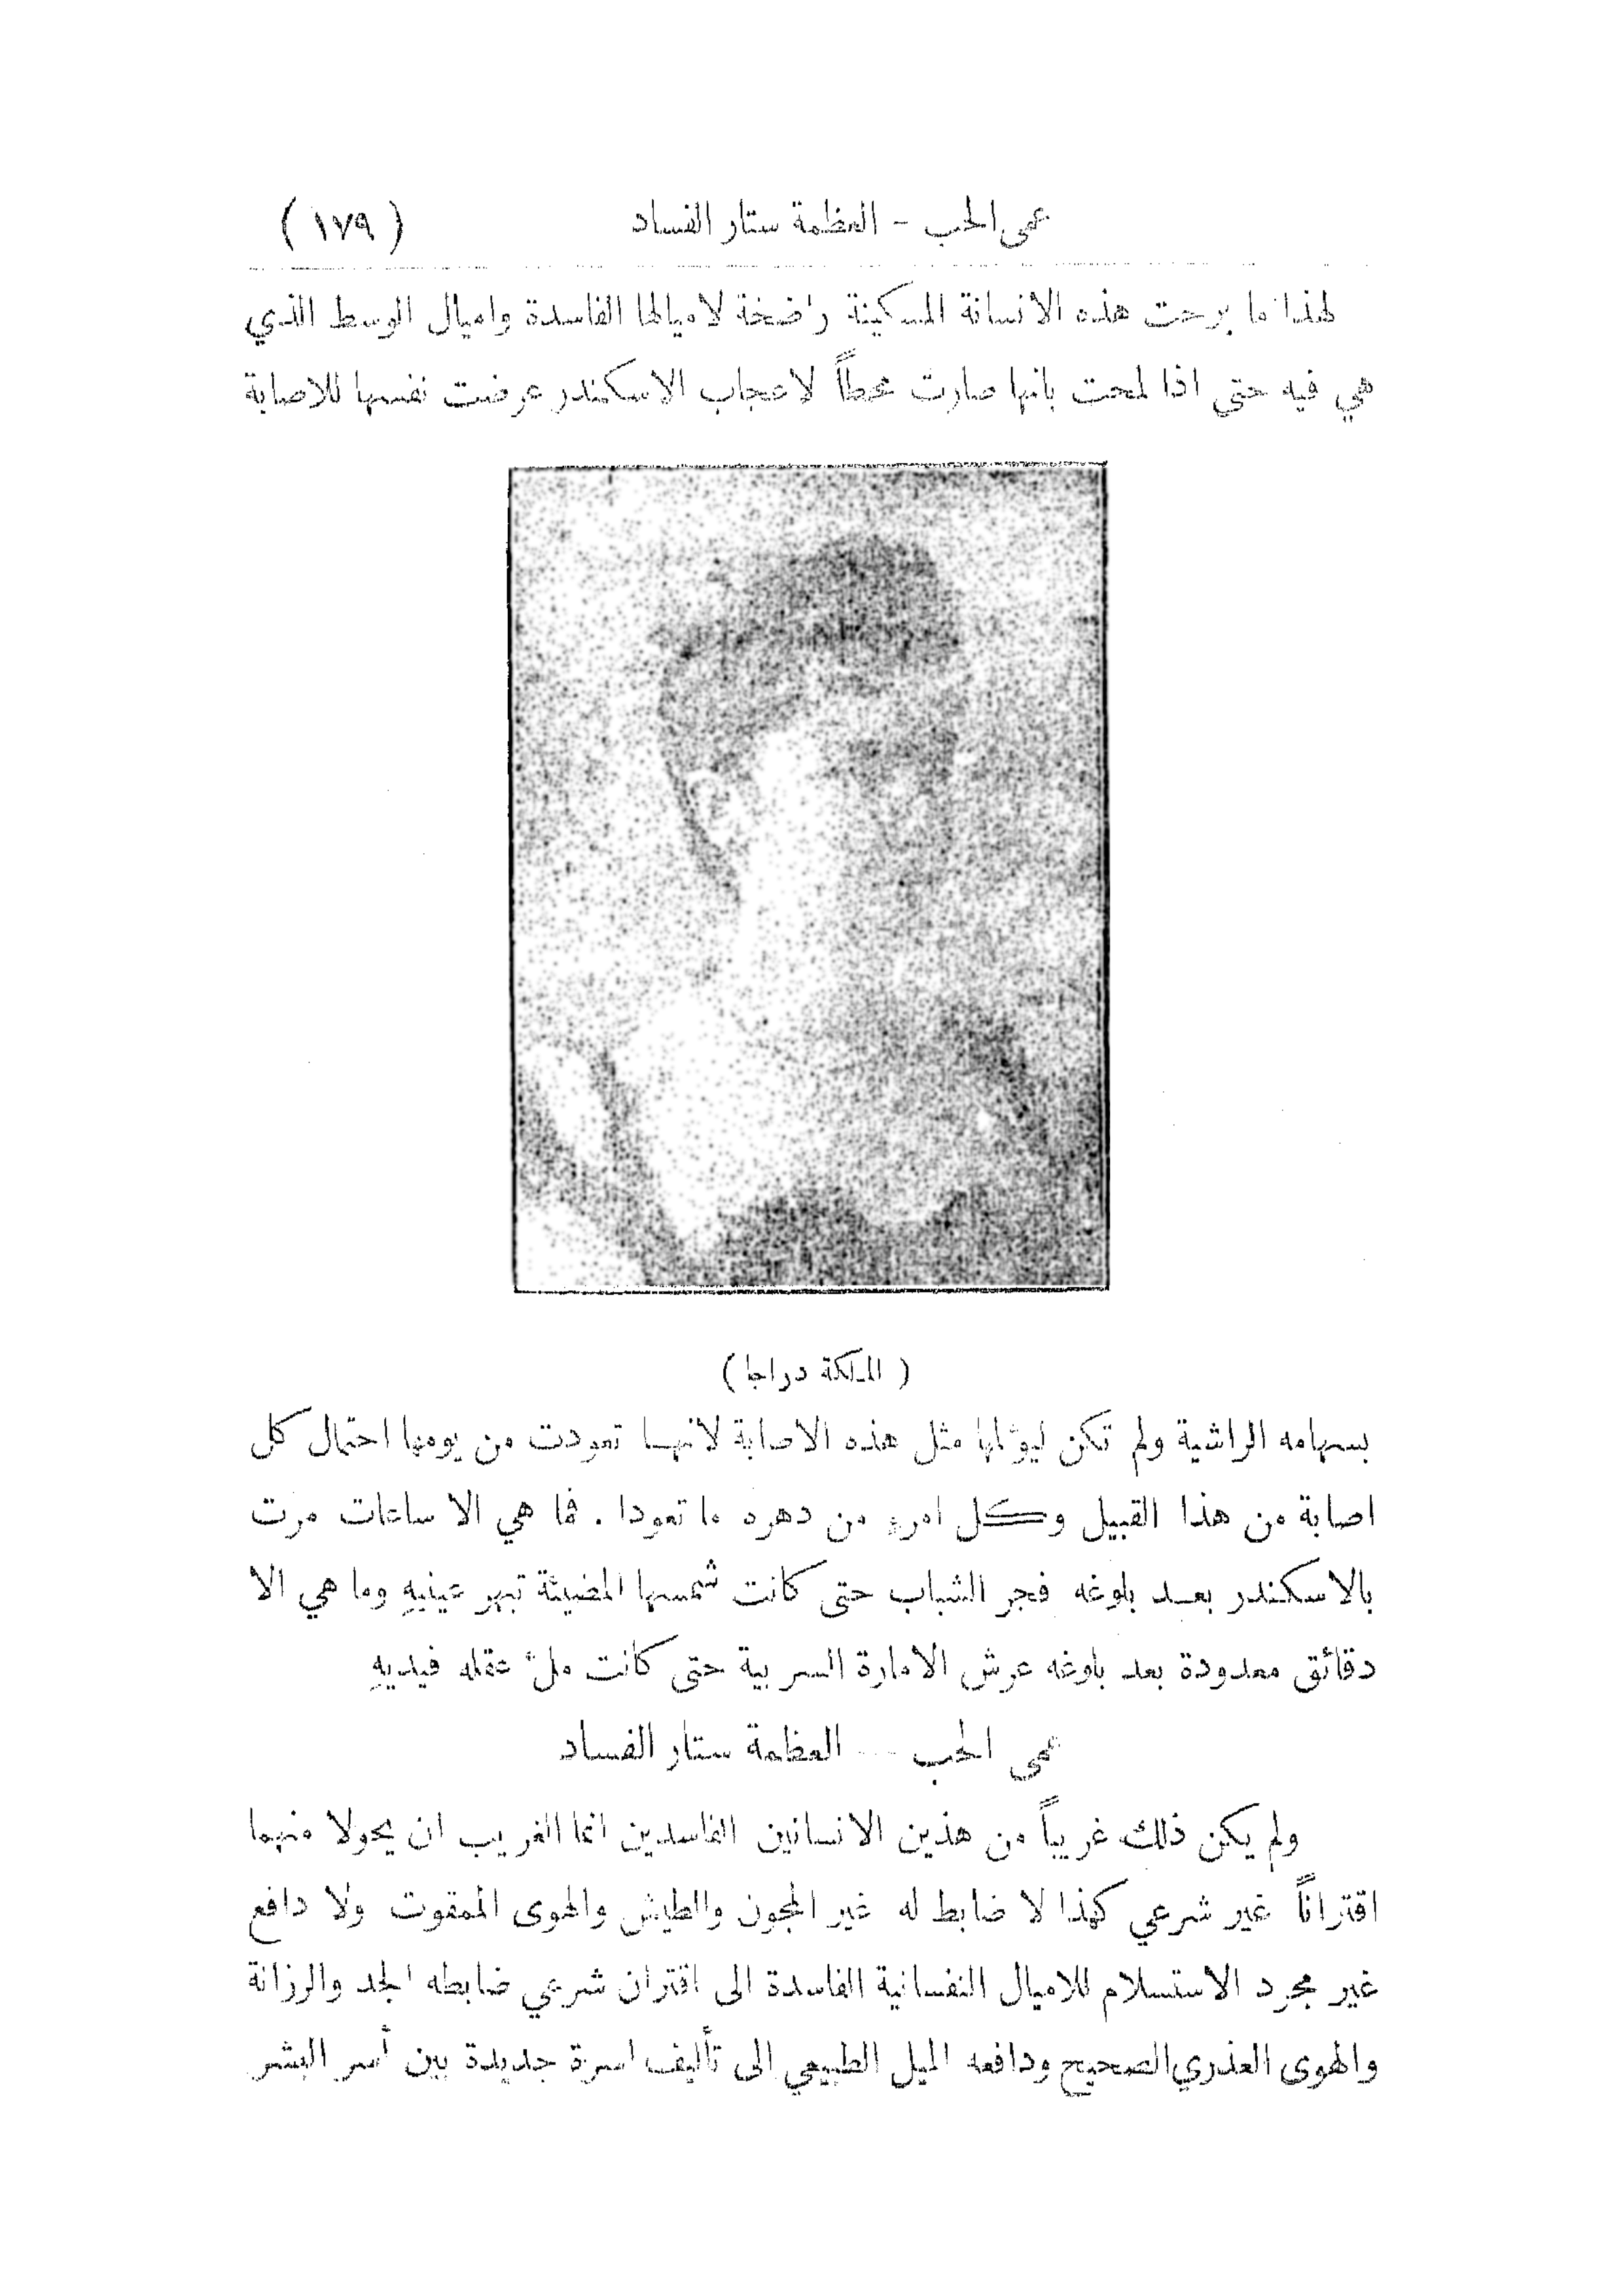 عمى الحب - العظمة ستار الفساد (١٧٩)
لهذا ما برحت هذه الانسانة المسكينة راضخة لاميالها الفاسدة واميال الوسط الذي
هي فيه حتى اذا لمحت بانها صارت محطاً لاعجاب الاسكندر عرضت نفسها للاصابة
( الملكة دراجا )
بسهامه الراشية ولم تكن ليؤلمها مثل هذه الاصابة لانهـا تعودت من يومها احتمال كل
اصابة من هذا القبيل وكل امرءٍ من دهره ما تعودا . فما هي الا ساعات مرت
بالاسكندر بعـد بلوغه فجر الشباب حتى كانت شمسها المضيئة تبهر عينيهِ وما هي الا
دقائق معدودة بعد بلوغه عرش الامارة السربية حتى كانت ملءَ عقله فيديهِ
عمى الحب -- العظمة ستار الفساد
ولم يكن ذلك غريباً من هذين الانسانين الفاسدين انما الغريب ان يحولا منهما
اقتراناً غير شرعي كهذا لا ضابط له غير المجون والطيش والهوى الممقوت ولا دافع
غير مجرد الاستسلام للاميال النفسانية الفاسدة الى اقتران شرعي ضابطه الجد والرزانة
والهوى العذري الصحيح ودافعه الميل الطبيعي الى تأليف اسرة جديدة بين أسر البشر